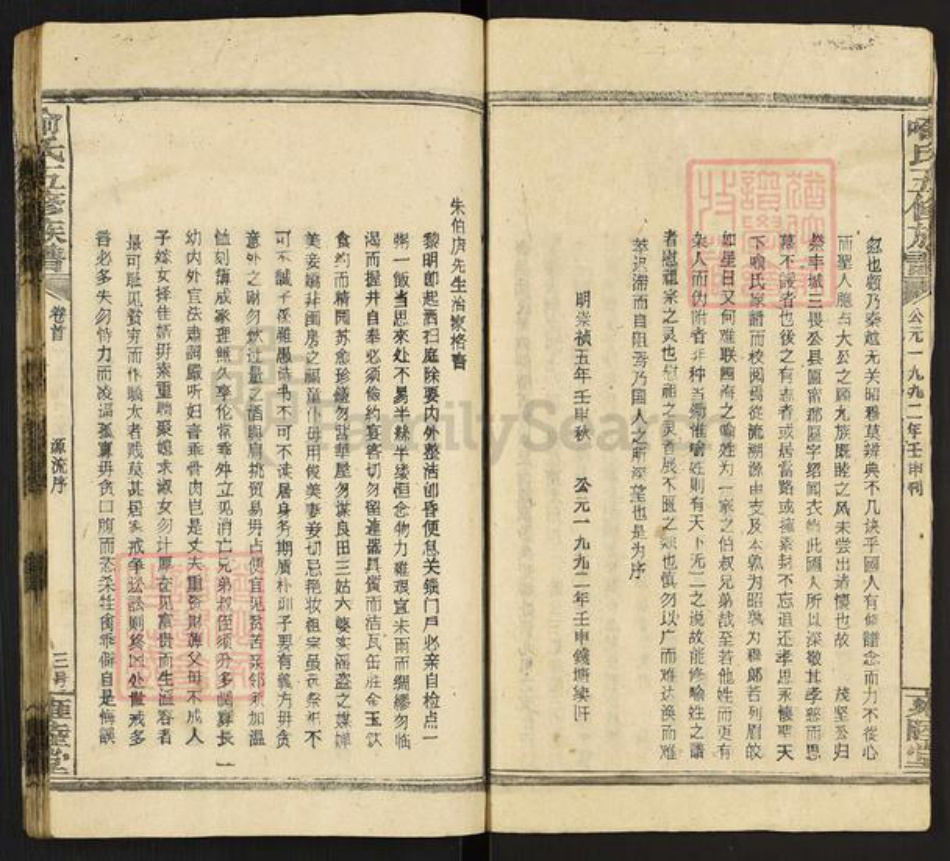 喻氏五修族譜
公元一九九二年壬申刊
忽也顧乃秦越无关昭穆莫辨典不几诀乎國人有修譜念而力不從心
而聖人胞与大公之顾九族既睦之风未尝出诸懷也故
茂坚公归
祭丰城三畏公县區富那區字绍闻衣
此國人所以深敬其孝慈而思
慕不諼者也後之有志者或居當路或擁素封不忘追还孝思永懷聖天
下喻氏家譜而校阅焉從流溯源由支及本孰为昭孰为穆郞若列眉皎
如星日又何难联四海之喻姓为一家之伯叔兄弟哉至若他姓而更有
杂人而伪附者非种当锄惟喻姓则有天下无二之说故能修喻姓之譜
者慰祖宗之灵也慰祖之灵者展不匮之
也慎勿以广而难达涣而难
萃迟滞而自阻焉乃国人之所深望也是为序
明崇祯五年壬申秋 公元一九九二年壬申錢塘
朱伯庐先生治家格言
黎明即起洒扫庭除要内外整洁即昏便息关锁门户必亲自检点一
粥一飯当思来处不易半絲半缕恒念物力維艰宜未雨而绸繆勿临
渴而掘井自奉必须俭約宴客切勿留連器具質而洁瓦缶胜金玉饮
食約而精园蔬愈珍饈勿营華屋勿谋良田三姑六婆实淫盗之媒婢
美妾嬌非閨房之福童仆毋用俊美妻妾切忌艳妆祖宗虽远祭祀不
可不誠子孫雖愚诗书不可不读居身务期质朴训子要有義方毋贪
意外之財勿饮过量之酒與肩挑貿易毋占便宜见貧苦亲邻须加温
恤刻薄成家理無久享伦常乖舛立见消亡兄弟叔侄须分多潤寡長
幼内外宜法肅詞嚴听妇言乖骨肉岂是丈夫重资財薄父母不成人
子嫁女择佳婿毋索重聘娶媳求淑女勿计厚奁见富贵而生谄容者
最可耻见貧穷而作驕太者贱莫甚居家戒争讼訟则終凶处世戒多
言言必多失勿恃力而凌逼孤寡毋贪口腹而恣杀牲禽乖僻自是悔誤
喻氏五修族譜
卷首
源流序
三号